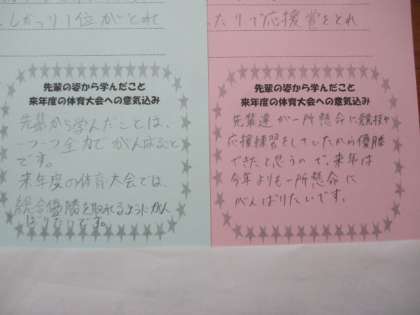 しっかり1位がとれ
先輩の姿から学んだこと
来年度の体育大会への意気込み
先輩から学んだことは、
一つ一つ全力でがんばること
です。
来年度の体育大会では、
総合優勝を取れるようにがん
ばりたいです。
たりて応援賞をとれ
先輩の姿から学んだこと
来年度の体育大会への意気込み
先輩達が一所懸命に競技や
応援練習をしていたから優勝
できたと思うので、来年は
今年よりも一所懸命に
がんばりたいです。